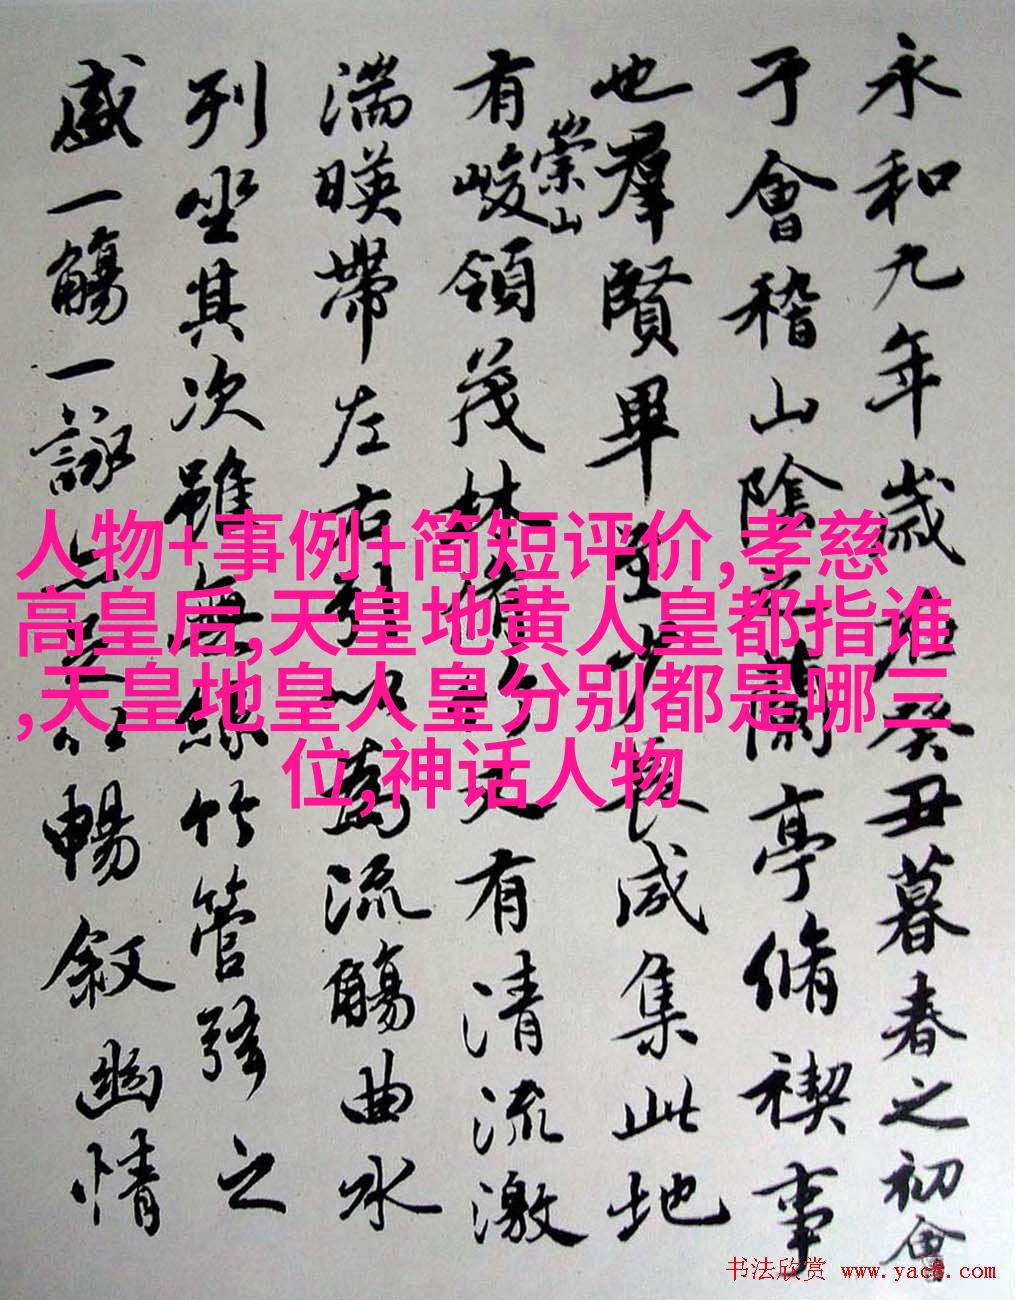 永和九年歲在癸丑暮春之初會
于會稽山陰之蘭亭脩禊事
也羣賢畢至少長咸集此地
有崇山峻領茂林脩竹又有清流激
湍暎帶左右引以為流觴曲水
列坐其次雖無絲竹管弦之
盛一觴一詠亦足以暢敘幽情
人物+事例+简短评价,孝慈
高皇后,天皇地黄人皇都指谁
,天皇地皇人皇分别都是哪三
位,神话人物
书法欣赏 www.yac8.com